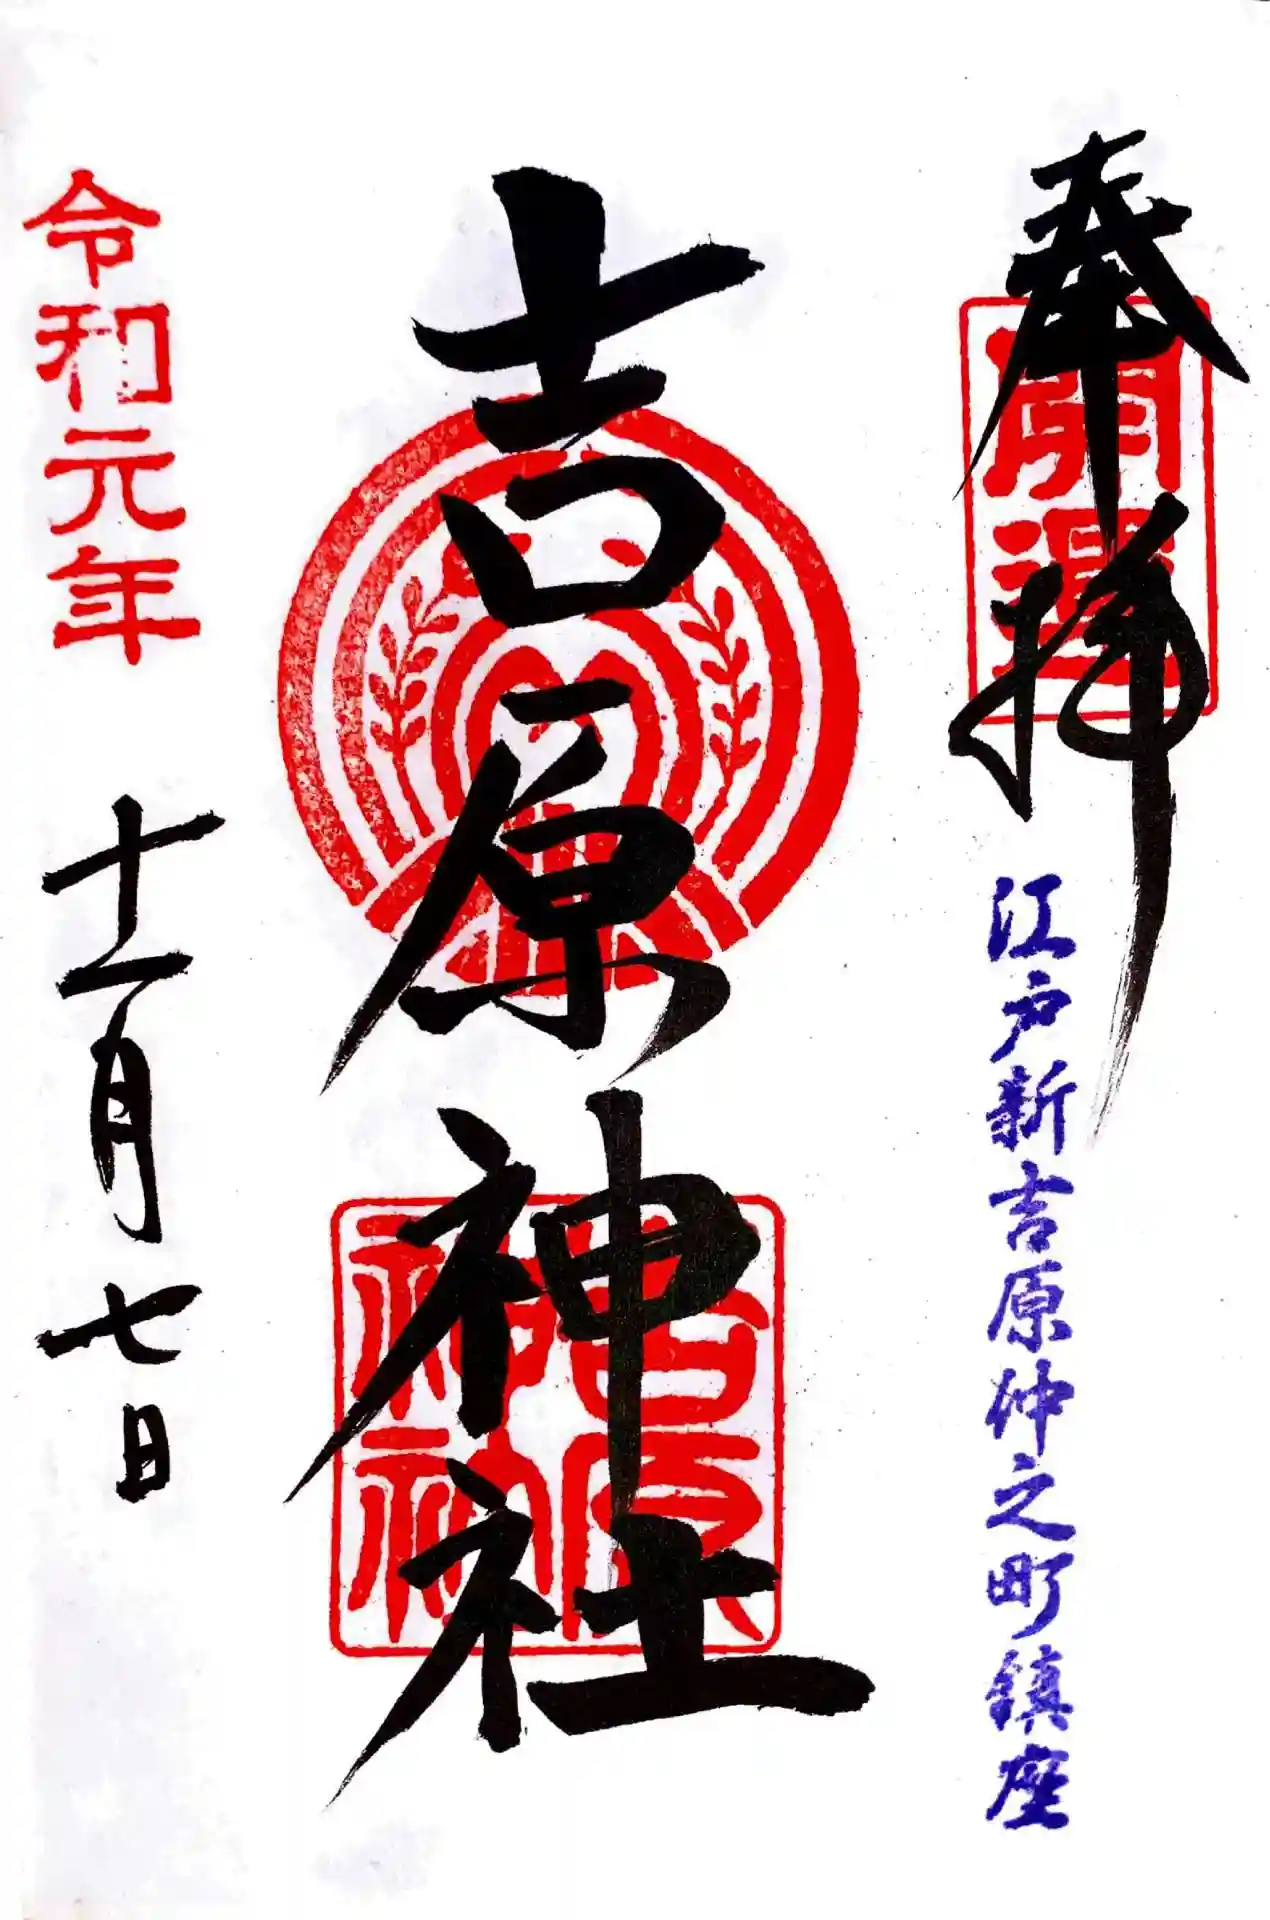 奉拝
開運
江戸新吉原仲之町鎮座
吉原神社
吉原
神社
令和元年
十二月七日